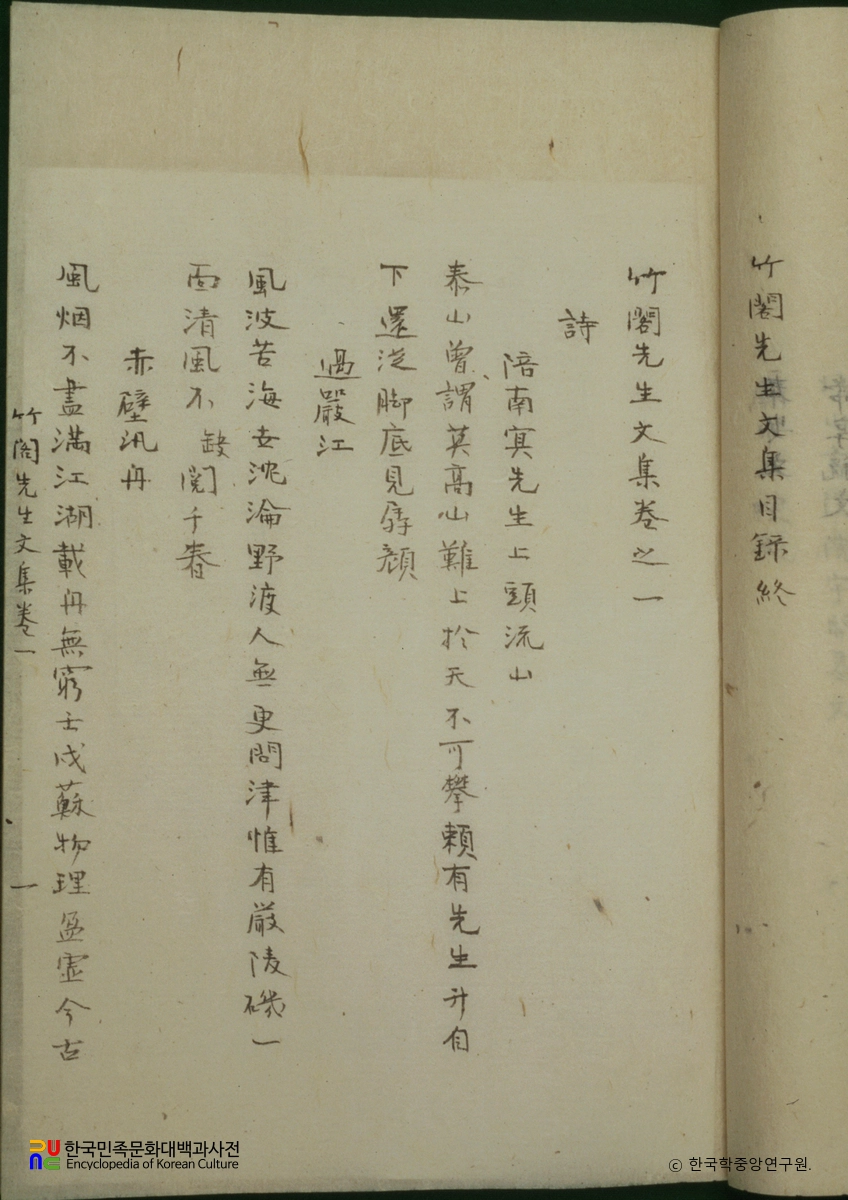 竹閣先生文集目録終
竹閣先生文集卷之一
詩
陪南冥先生上頭流山
泰山曾謂莫高山難上於天不可攀賴有先生升自
下還從脚底見孱顔
過嚴江
風波苦海去沈淪野渡人無更問津惟有嚴陵磯一
面清風不缺閱千春
赤壁汎舟
風烟不盡滿江湖載舟無窮士戊蘇物理盈虛今古
竹閣先生文集卷一
一
한국민족문화대백과사전
Encyclopedia of Korean Culture
ⓒ 한국학중앙연구원.